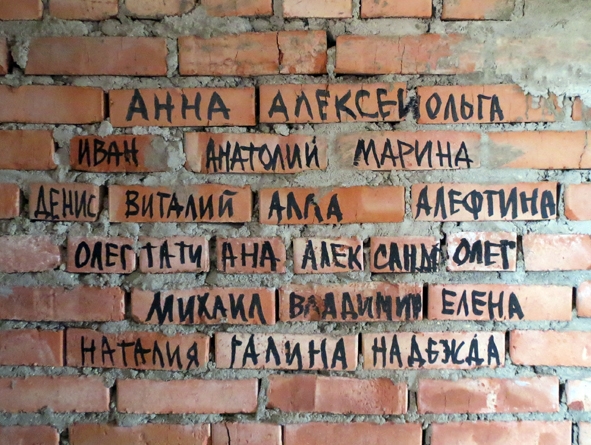 АННА АЛЕКСЕЙ ОЛЬГА
ИВАН АНАТОЛИЙ МАРИНА
ДЕНИС ВИТАЛИЙ АЛЛА АЛЕФТИНА
ОЛЕГ ТАТИ АНА АЛЕК САНДР ОЛЕГ
МИХАИЛ ВЛАДИМИР ЕЛЕНА
НАТАЛИЯ ГАЛИНА НАДЕЖДА